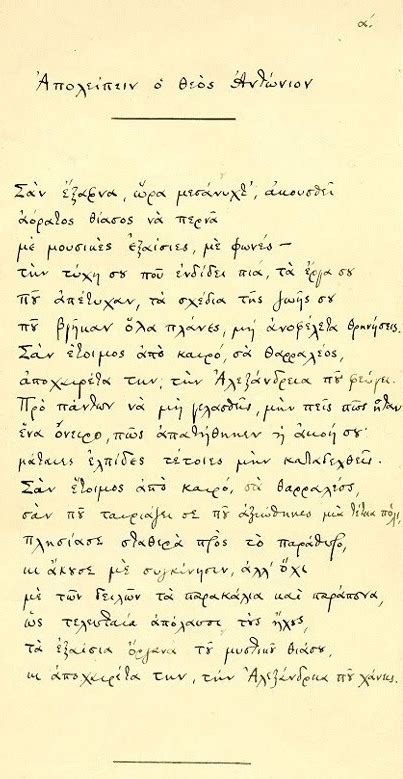 α΄.
Ἀπολείπειν ὁ θεὸς Ἀντώνιον
Σὰν ἔξαφνα, ὥρα μεσάνυχτ’, ἀκουσθεῖ
ἀόρατος θίασος νὰ περνᾶ
μὲ μουσικὲς ἐξαίσιες, μὲ φωνές —
τὴν τύχη σου ποῦ ἐνδίδει πιά, τὰ ἔργα σου
ποῦ ἀπέτυχαν, τὰ σχέδια τῆς ζωῆς σου
ποῦ βγῆκαν ὅλα πλάνες, μὴ ἀνοφέλετα θρηνήσεις.
Σὰν ἕτοιμος ἀπὸ καιρό, σὰ θαρραλέος,
ἀποχαιρέτα την, τὴν Ἀλεξάνδρεια ποῦ φεύγει.
Πρὸ πάντων νὰ μὴ γελασθεῖς, μὴν πεῖς πῶς ἦταν
ἕνα ὄνειρο, πῶς ἀπατήθηκεν ἡ ἀκοή σου·
μάταιες ἐλπίδες τέτοιες μὴν καταδεχθεῖς.
Σὰν ἕτοιμος ἀπὸ καιρό, σὰ θαρραλέος,
σὰν ποῦ ταιριάζει σε ποῦ ἀξιώθηκες μιὰ τέτοια πόλι,
πλησίασε σταθερὰ πρὸς τὸ παράθυρο,
κι ἄκουσε μὲ συγκίνησιν, ἀλλ’ ὄχι
μὲ τῶν δειλῶν τὰ παρακάλια καὶ παράπονα,
ὡς τελευταία ἀπόλαυσι τοὺς ἤχους,
τὰ ἐξαίσια ὄργανα τοῦ μυστικοῦ θιάσου,
κι ἀποχαιρέτα την, τὴν Ἀλεξάνδρεια ποῦ χάνεις.